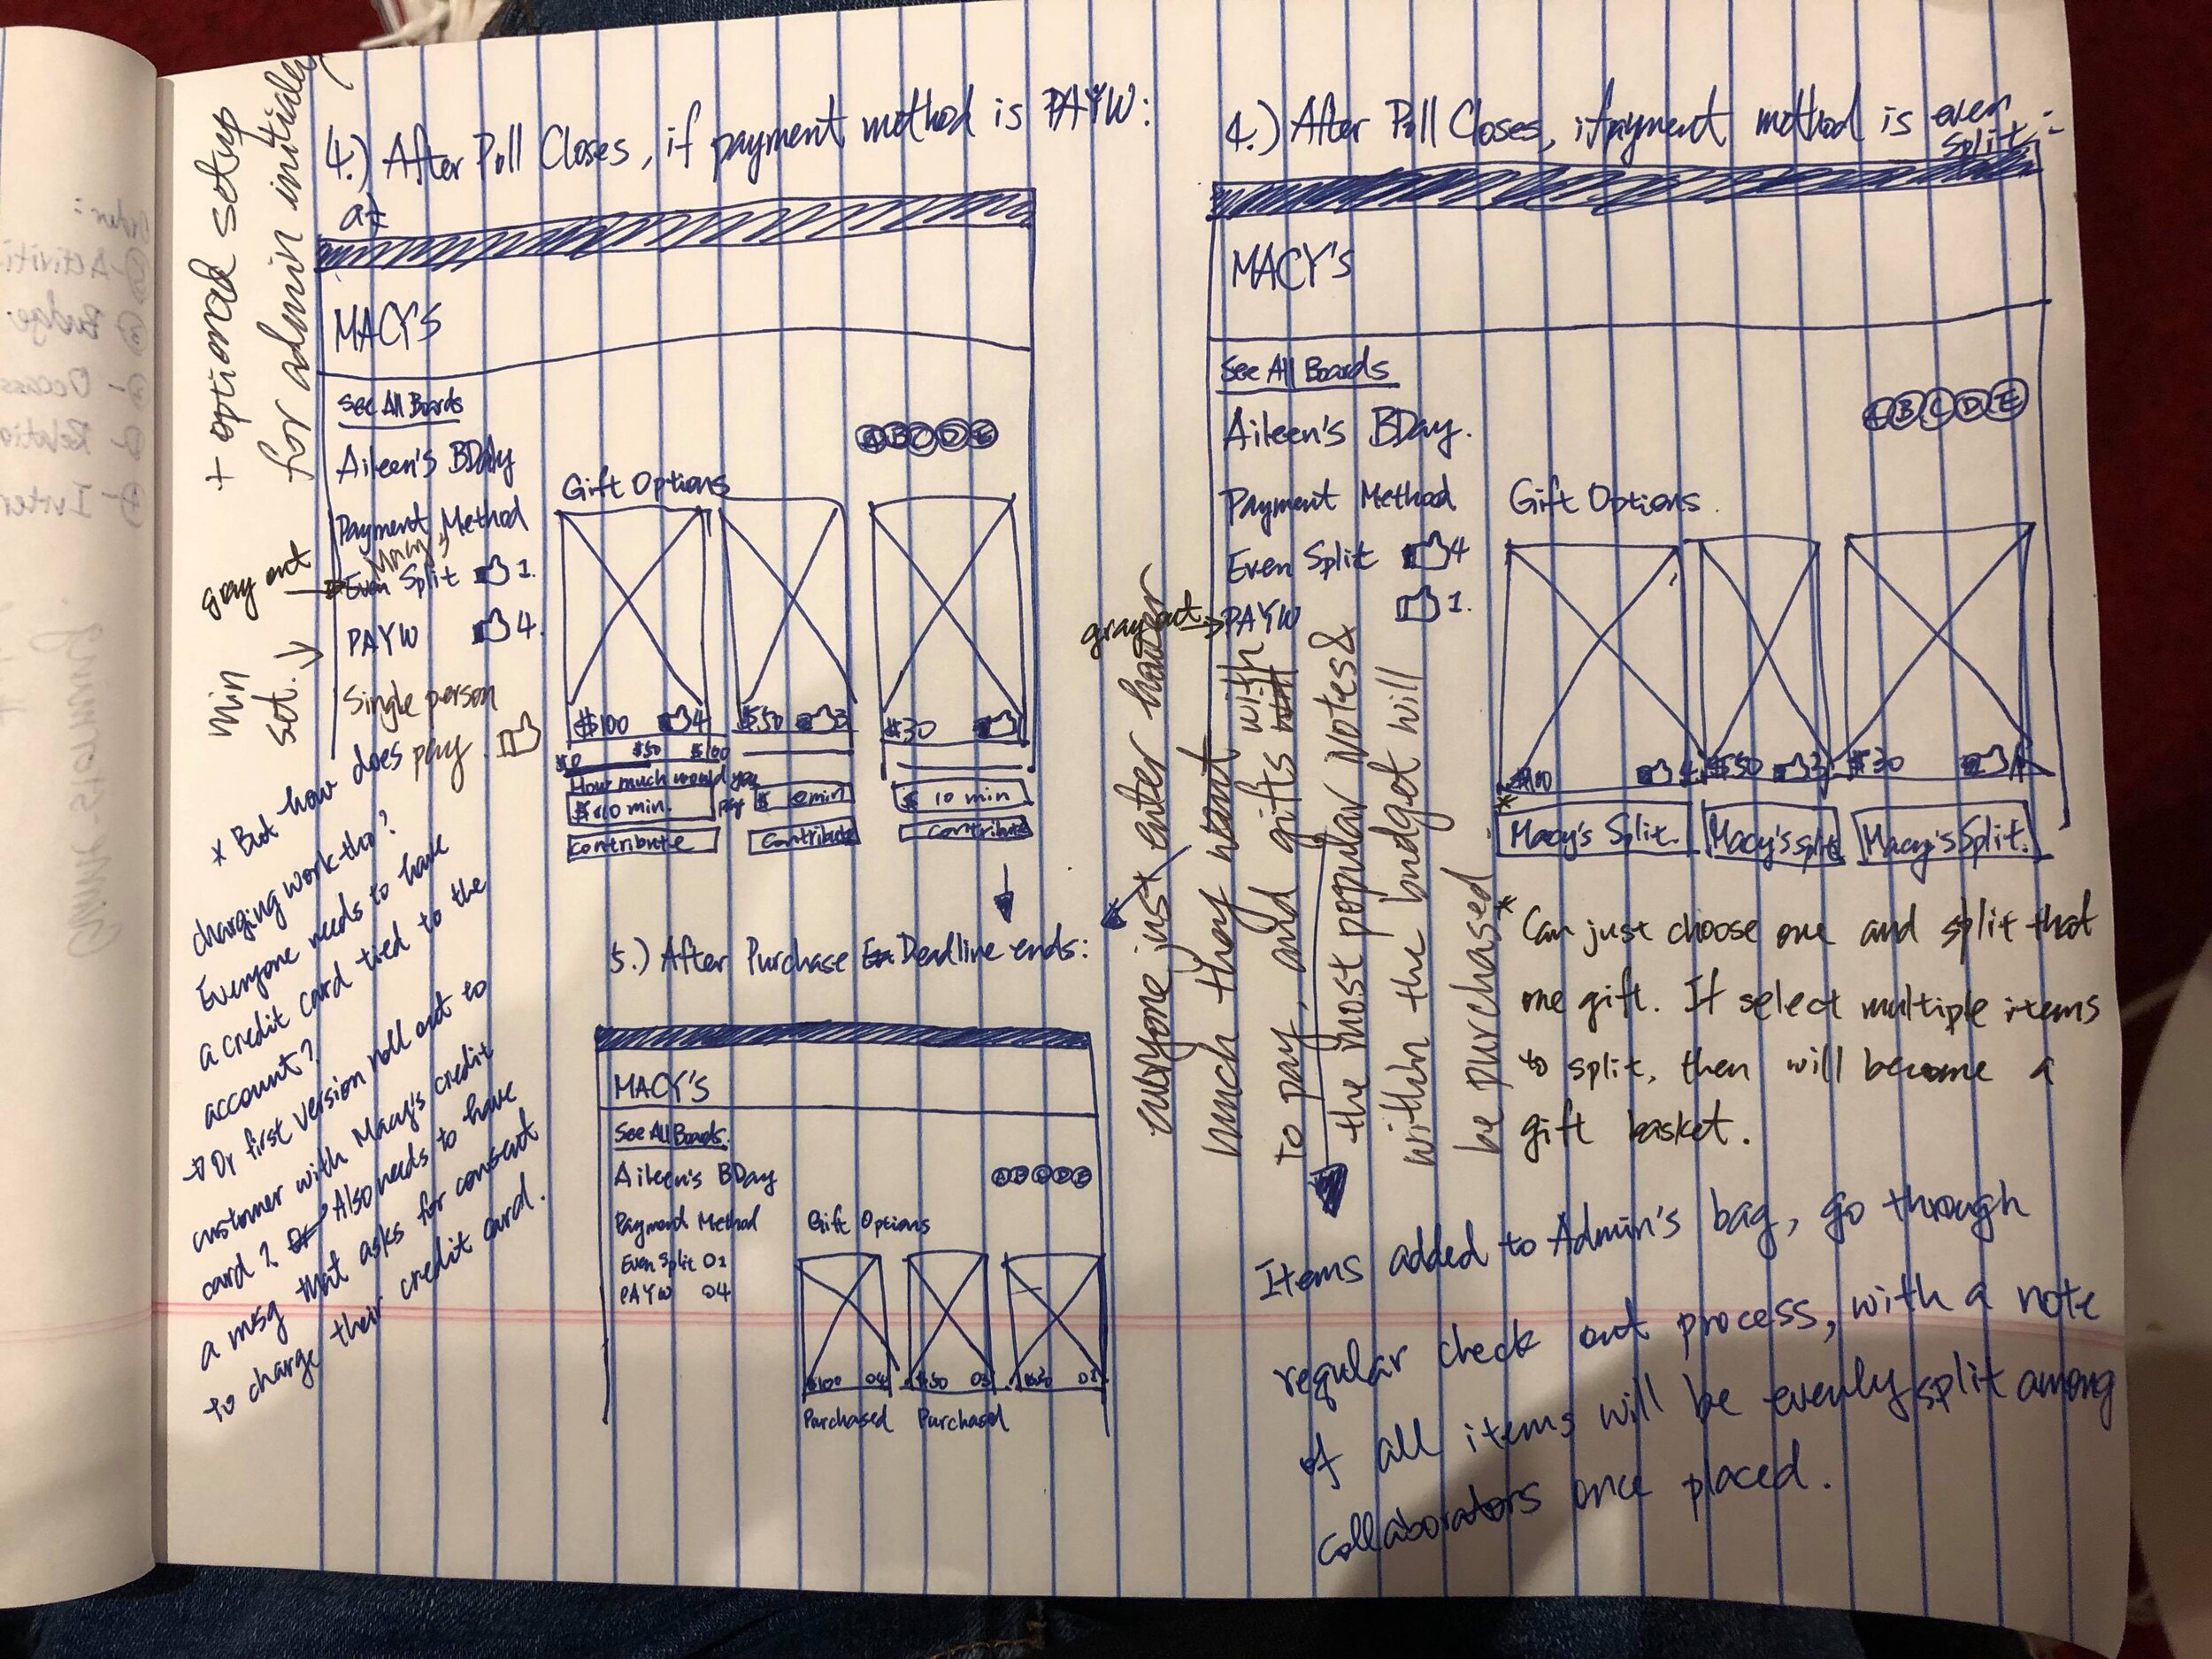 + optional setup
for admin initially
4.) After Poll Closes, if payment method is PAYW:
at
MACY'S
See All Boards
Aileen's BDay
Payment Method
Macy's
gray out
Even Split 1.
PAYW 4.
min
set.
Single person
pay
Gift Options
$100 4
$50 3
$30
$0 $50 $100
How much would you
pay
$ 10 min.
$ 0 min
$ 10 min
contribute
Contribute
contribute
* But how does
charging work tho?
Everyone needs to have
a credit card tied to the
account?
→ Or first version roll out to
customer with Macy's credit
card? Also needs to have
a msg that asks for consent
to charge their credit card.
5.) After Purchase Deadline ends:
MACY'S
See All Boards
Aileen's BDay
A B C D E
Payment Method
Even Split 01
PAYW 04
Gift Options
$100 04
$50 03
$30 01
Purchased
Purchased
4.) After Poll Closes, if payment method is even
split:
MACY'S
See All Boards
Aileen's BDay.
A B C D E
Payment Method
Even Split 4
gray out
PAYW 1.
Gift Options
$100 4
$50 3
$30 1
Macy's Split.
Macy's Split
Macy's Split.
everyone just enter how
much they want
to pay, and gifts with
the most popular votes &
within the budget will
be purchased
* Can just choose one and split that
one gift. If select multiple items
to split, then will become a
gift basket.
Items added to Admin's bag, go through
regular check out process, with a note
of all items will be evenly split among
collaborators once placed.